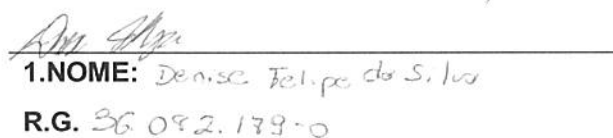 1.NOME: Denise Felipe da Silva
R.G. 36.092.179-0